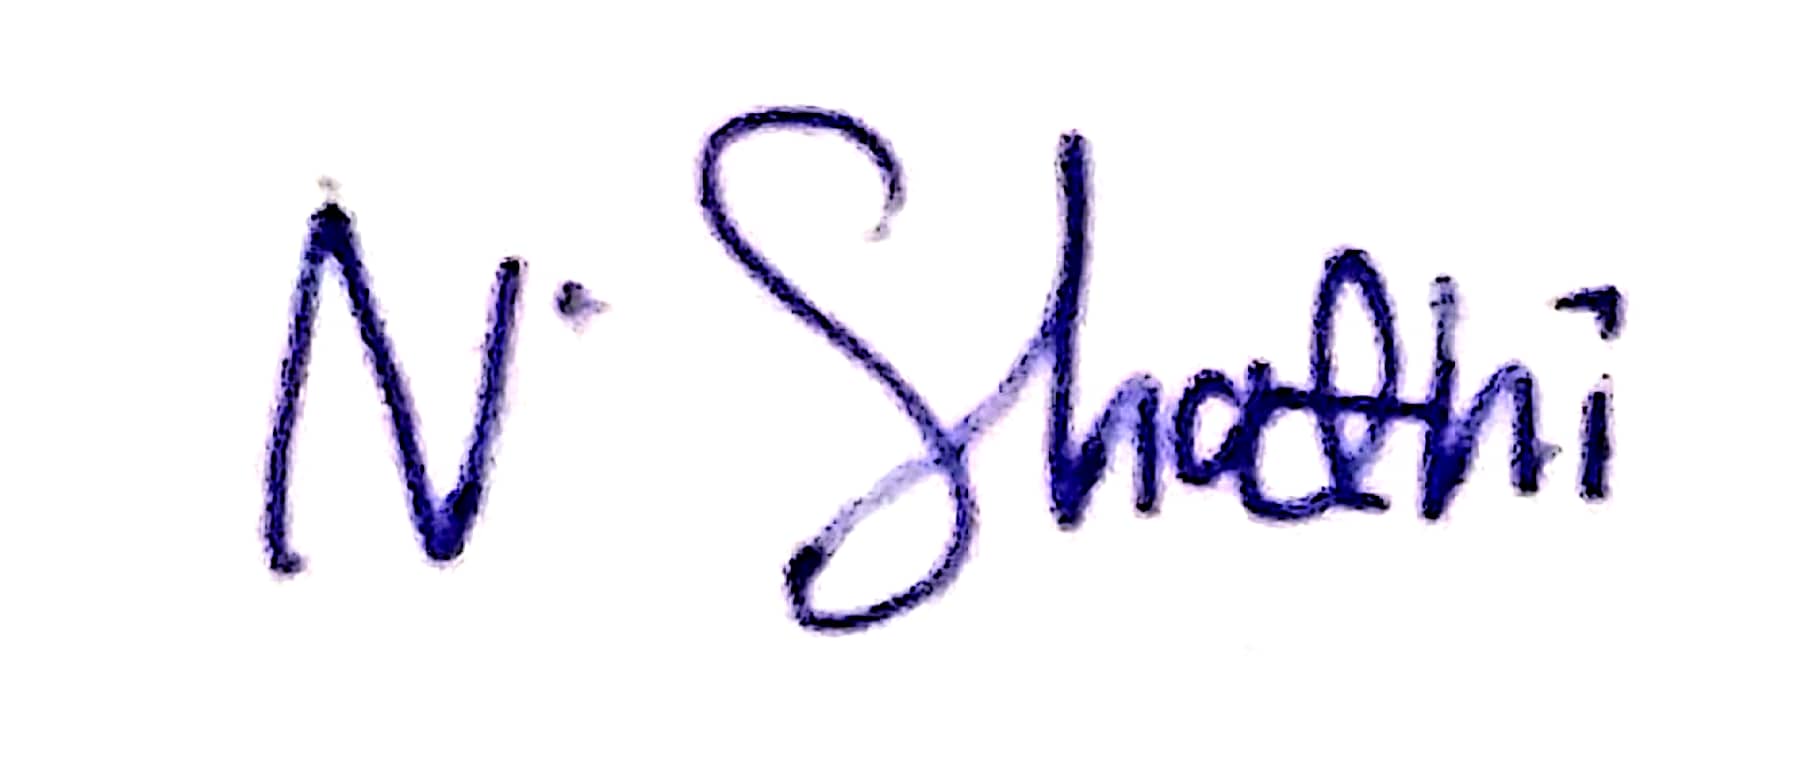 N. Shathi